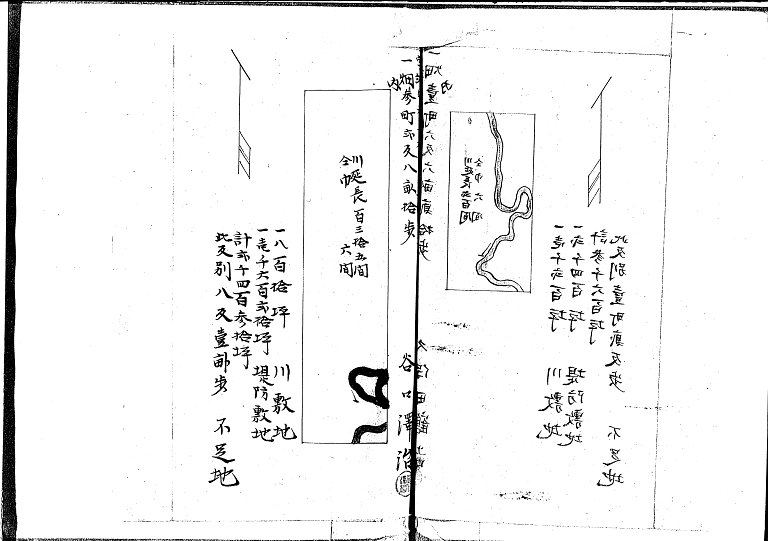 一畑壹町六反六畝貳拾歩
内
川延長弐百間
仝巾六間
一壱千弐百坪 川敷地
一弐千四百坪 堤防敷地
計参千六百坪
此反別壹町貳反歩 不足地
一畑参町弐反八畝拾歩
内
谷口澤治
川延長百三拾五間
仝巾 六間
一八百拾坪 川敷地
一壱千六百弐拾坪 堤防敷地
計弐千四百参拾坪
此反別八反壹畝歩 不足地